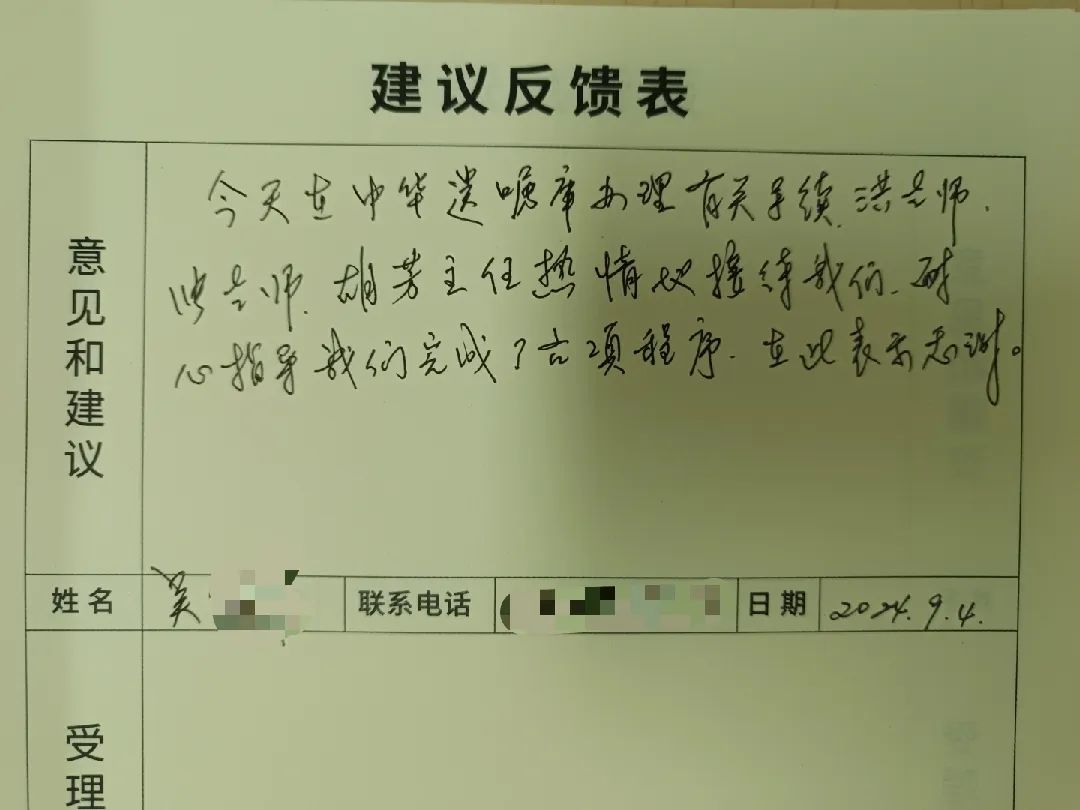 建议反馈表
意见和建议
今天在中华遗嘱库办理有关手续,洪老师、
老师、胡芳主任热情地接待我们,耐
心指导我们完成了各项程序,在此表示感谢。
姓名 吴
联系电话
日期 2024.9.4.
受理